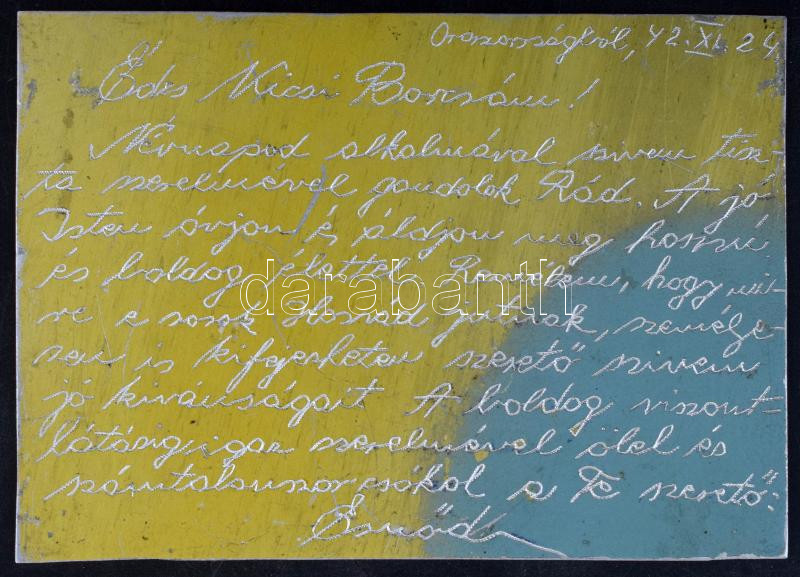 Oroszországból, 42. XI. 24
Édes Kicsi Borcsám!
Névnapod alkalmával szivem tisz-
ta szerelmével gondolok Rád. A jó
Isten óvjon és áldjon meg hosszú
és boldog élettel. Remélem, hogy, mi-
re e sorok Hozzád jutnak, személye-
sen is kifejezhetem szerető szivem
jó kivánságait. A boldog viszont-
látásig igaz szerelmével ölel és
számtalanszor csókol a Te szerető:
Ernőd
darabanth